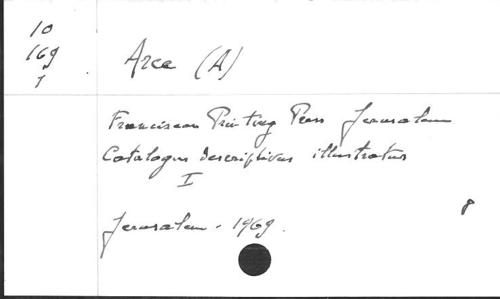 10
169
1
Arce (A)
Franciscan Printing Press Jerusalem
Catalogus descriptivus illustratus
I
8
Jerusalem. 1969.